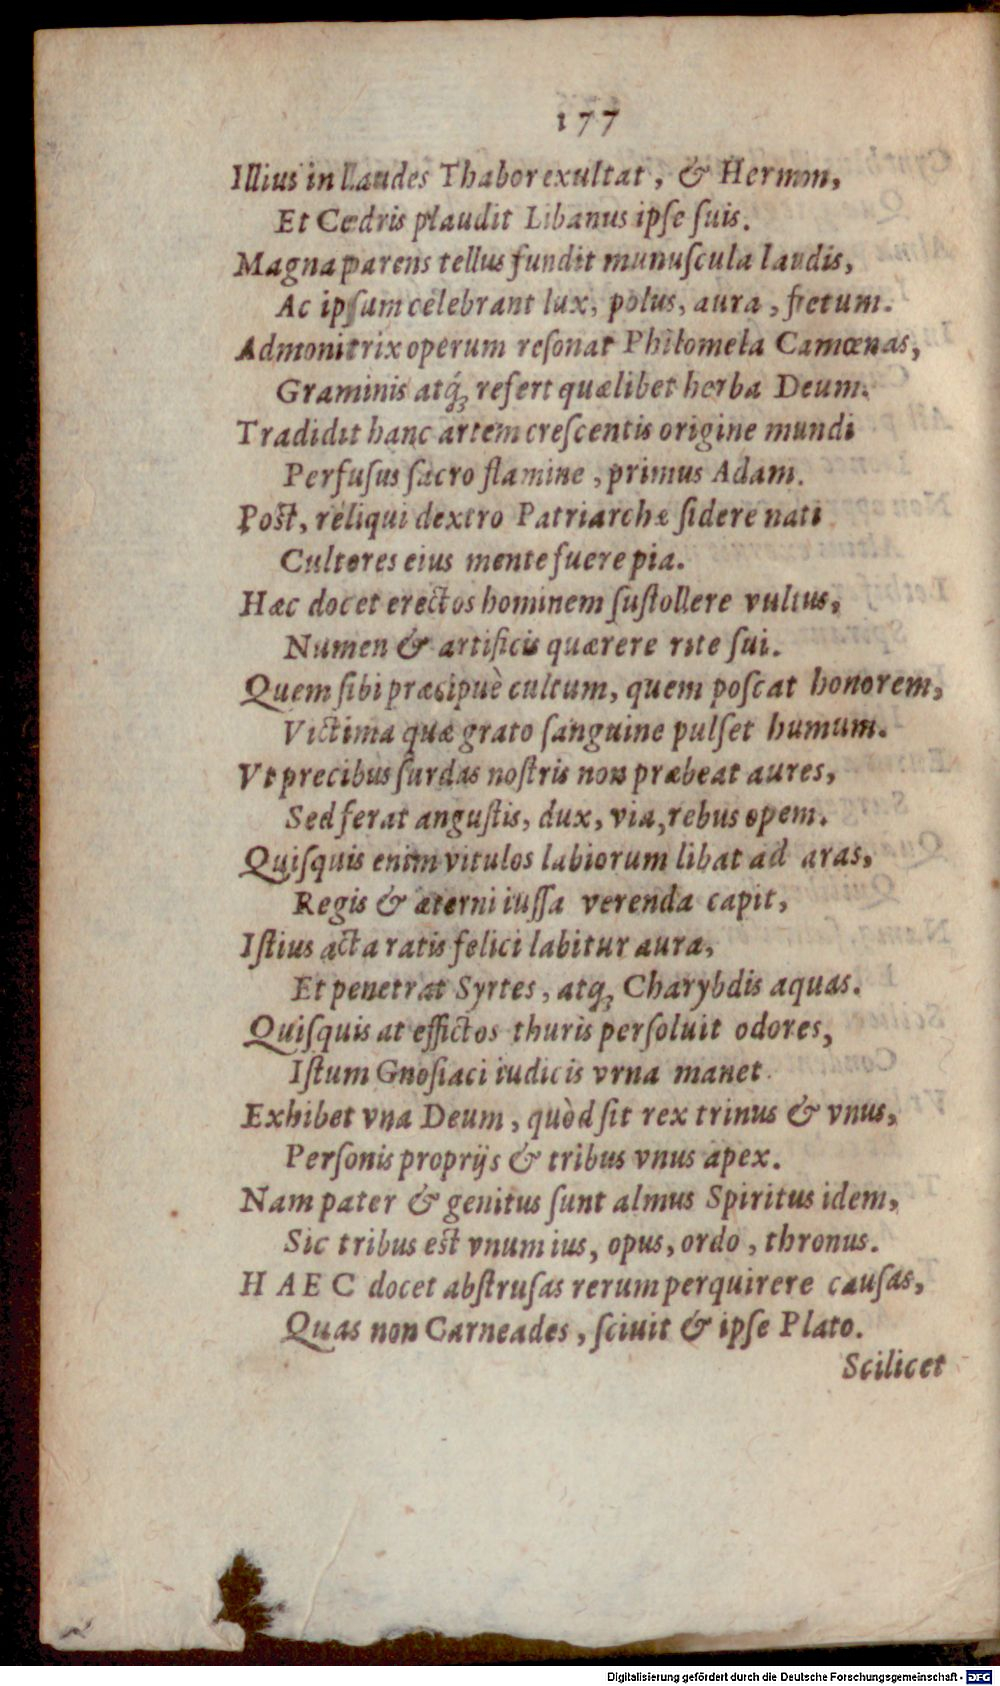 177
Illius in laudes Thabor exultat, & Hermon,
Et Cedris plaudit Libanus ipſe ſuis.
Magna parens tellus fundit munuſcula laudis,
Ac ipſum celebrant lux, polus, aura, fretum.
Admonitrix operum reſonat Philomela Camœnas,
Graminis atq́ꝫ refert quælibet herba Deum.
Tradidit hanc artem creſcentis origine mundi
Perfuſus ſacro flamine, primus Adam.
Poſt, reliqui dextro Patriarchæ ſidere nati
Cultores eius mente fuere pia.
Hæc docet erectos hominem ſuſtollere vultus,
Numen & artificis quærere rite ſui.
Quem ſibi præcipuè cultum, quem poſcat honorem,
Victima quæ grato ſanguine pulſet humum.
Vt precibus ſurdas noſtris non præbeat aures,
Sed ferat anguſtis, dux, via, rebus opem.
Quiſquis enim vitulos labiorum libat ad aras,
Regis & æterni iuſſa verenda capit,
Iſtius acta ratis felici labitur aura,
Et penetrat Syrtes, atqꝫ Charybdis aquas.
Quiſquis at effictos thuris perſoluit odores,
Iſtum Gnoſiaci iudicis vrna manet.
Exhibet vna Deum, quòd ſit rex trinus & vnus,
Perſonis proprijs & tribus vnus apex.
Nam pater & genitus ſunt almus Spiritus idem,
Sic tribus eſt vnum ius, opus, ordo, thronus.
HAEC docet abſtruſas rerum perquirere cauſas,
Quas non Carneades, ſciuit & ipſe Plato.
Scilicet
Digitalisierung gefördert durch die Deutsche Forschungsgemeinschaft - DFG